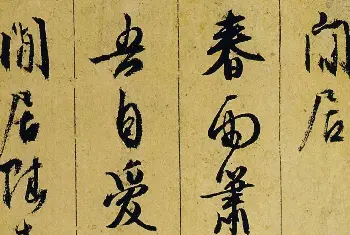 閒居
春雨蕭
吾自愛
閒居